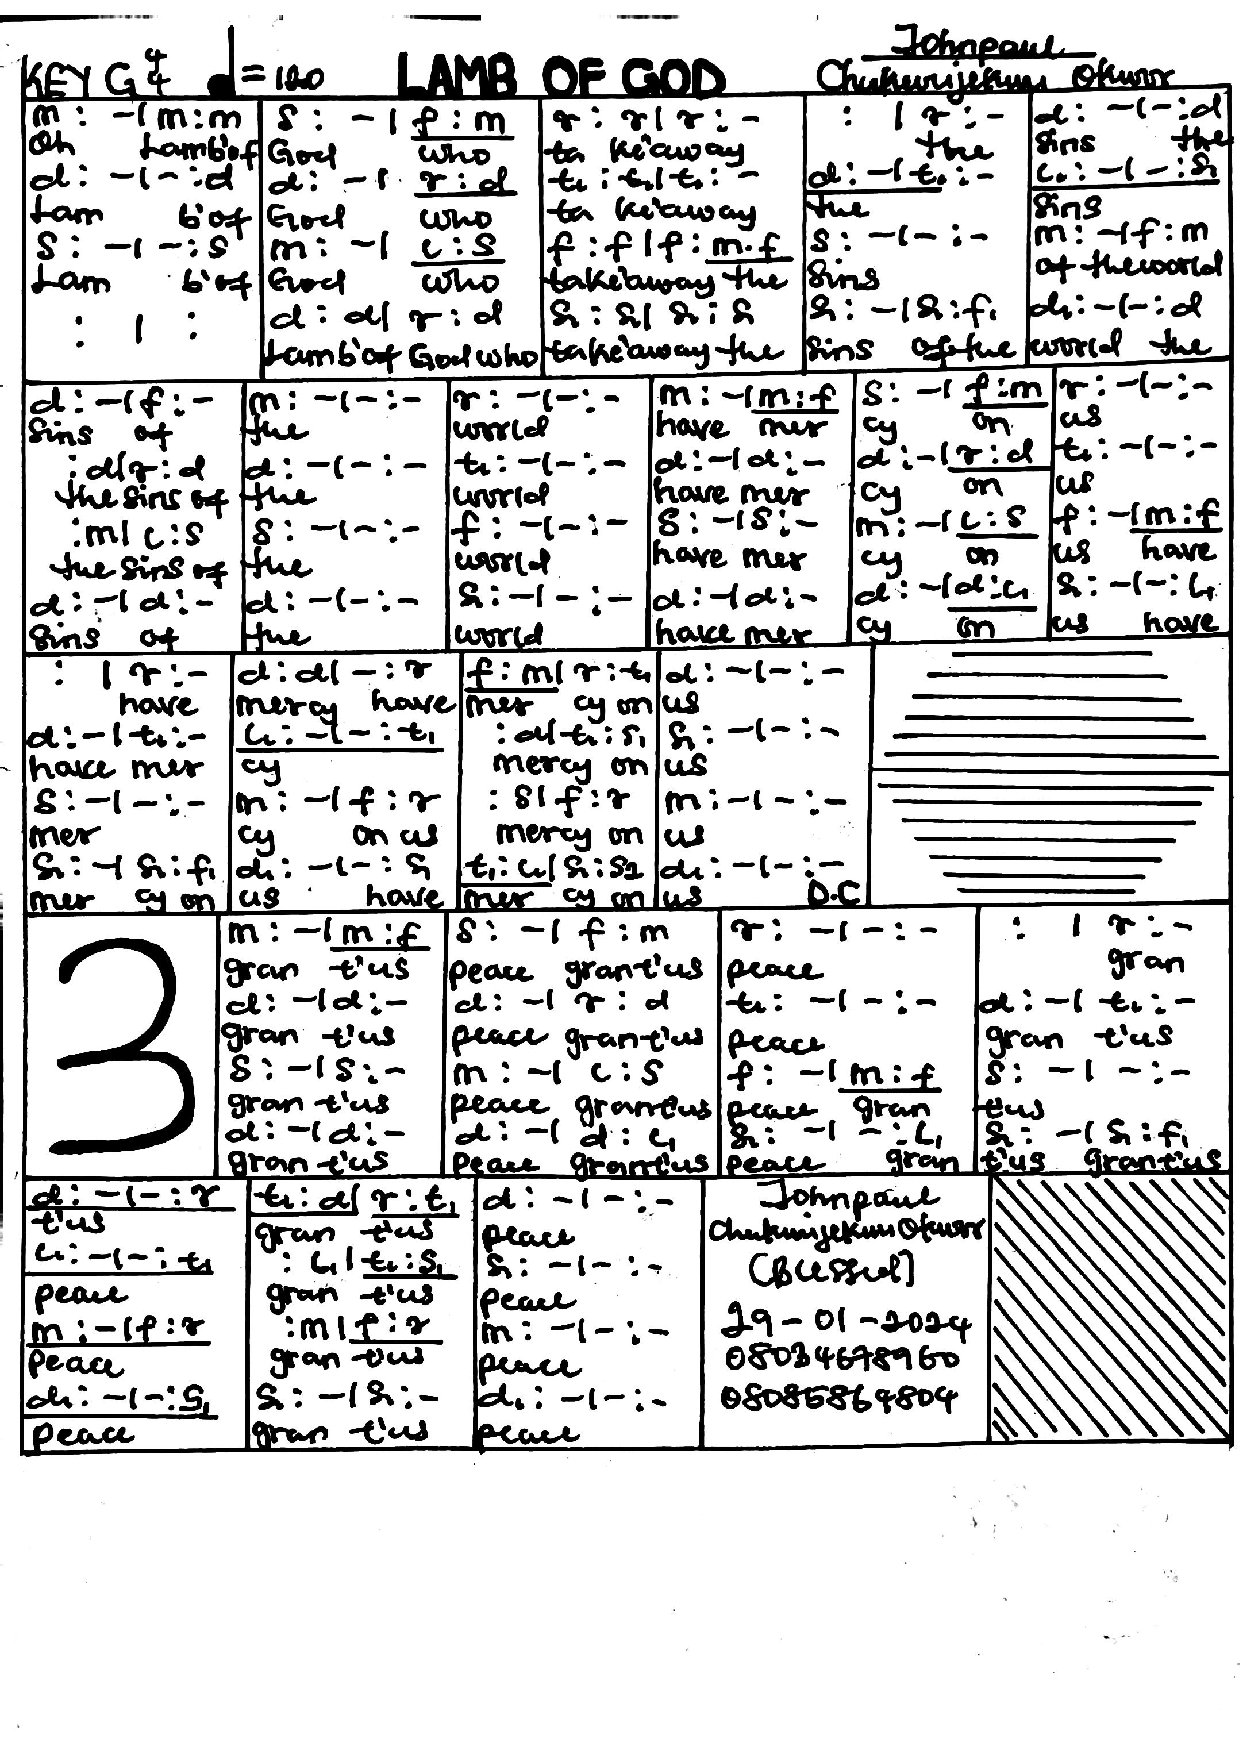 KEY G 4/4 ♩ = 120 LAMB OF GOD Johnpaul
Chukwujekwu Okuor
m : - | m : m
Oh Lamb'of
d : - | - : d
Lam b'of
S : - | - : S
Lam b'of
: | :
S : - | f : m
God who
d : - | r : d
God who
m : - | l : S
God who
d : d | r : d
Lamb'of God who
r : r | r : -
ta ke'away
t₁ : t₁ | t₁ : -
ta ke'away
f : f | f : m.f
take'away the
S₁ : S₁ | S₁ : S₁
take'away the
: | r : -
the
d : - | t₁ : -
the
S : - | - : -
Sins
S₁ : - | S₁ : f₁
Sins of the
d : - | - : d
Sins the
l₁ : - | - : S₁
Sins
m : - | f : m
of the world
d₁ : - | - : d
world the
d : - | f : -
Sins of
: d | r : d
the Sins of
: m | l : S
the Sins of
d : - | d : -
Sins of
m : - | - : -
the
d : - | - : -
the
S : - | - : -
the
d : - | - : -
the
r : - | - : -
world
t₁ : - | - : -
world
f : - | - : -
world
S₁ : - | - : -
world
m : - | m : f
have mer
d : - | d : -
have mer
S : - | S : -
have mer
d : - | d : -
have mer
S : - | f : m
cy on
d : - | r : d
cy on
m : - | l : S
cy on
d : - | d : l₁
cy on
r : - | - : -
us
t₁ : - | - : -
us
f : - | m : f
us have
S₁ : - | - : l₁
us have
: | r : -
have
d : - | t₁ : -
have mer
S : - | - : -
mer
S₁ : - | S₁ : f₁
mer cy on
d : d | - : r
mercy have
l₁ : - | - : t₁
cy
m : - | f : r
cy on us
d₁ : - | - : S₁
us have
f : m | r : t₁
mer cy on
: d | t₁ : S₁
mercy on
: S | f : r
mercy on
t₁ : l₁ | S₁ : S2
mer cy on
d : - | - : -
us
S₁ : - | - : -
us
m : - | - : -
us
d₁ : - | - : -
us D.C
3
m : - | m : f
gran t'us
d : - | d : -
gran t'us
S : - | S : -
gran t'us
d : - | d : -
gran t'us
S : - | f : m
peace grant'us
d : - | r : d
peace grant'us
m : - | l : S
peace grantus
d : - | d : l₁
peace grant'us
r : - | - : -
peace
t₁ : - | - : -
peace
f : - | m : f
peace gran
S₁ : - | - : l₁
peace gran
: | r : -
gran
d : - | t₁ : -
gran t'us
S : - | - : -
tus
S₁ : - | S₁ : f₁
t'us grant'us
d : - | - : r
t'us
l₁ : - | - : t₁
peace
m : - | f : r
peace
d₁ : - | - : S₁
peace
t₁ : d | r : t₁
gran t'us
: l₁ | t₁ : S₁
gran t'us
: m | f : r
gran t'us
S₁ : - | S₁ : -
gran t'us
d : - | - : -
peace
S₁ : - | - : -
peace
m : - | - : -
peace
d₁ : - | - : -
peace
Johnpaul
Chukwujekwu Okuor
(Blessed)
29-01-2024
08034678960
08085864804